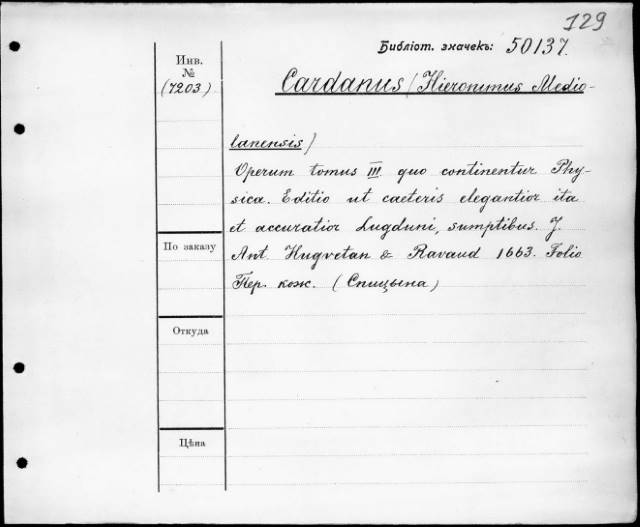 129
Библіот. значекъ: 50137.
Инв.
№
(7203)
Cardanus (Hieronimus Medio-
lanensis)
Operum tomus III. quo continentur Phy-
sica. Editio ut caeteris elegantior ita
et accuratior Lugduni, sumptibus. J.
По заказу
Ant. Hugvetan & Ravaud 1663. Folio
Пер. кож. (Спицына)
Откуда
Цѣна